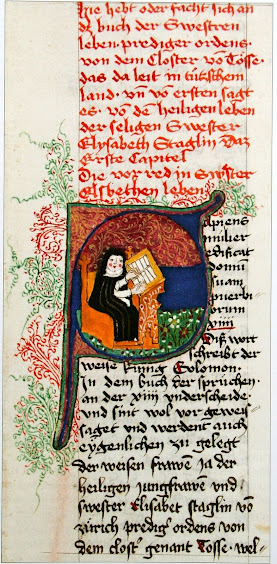 Hie hebt oder facht sich an
dz buch der Swestren
leben, prediger ordens,
von dem Closter vo Tösse,
das da leit in tütschem
land, vn vo ersten sagt
es, vo de heiligen leben
der seligen Swester
Elysabeth Staglin Daz
Erste Capitel
Die vor red in Swester
Elsbethen leben
Sapiens
mulier
edificat
domu
suam
puerbi
orum
xiiii
Diß wort
schreibt der
weise küng Solomon,
In dem buch der sprüchen,
an der xiiij underscheide,
und sint wol vor geweis
saget und werdent auch
eygenlichen zu gelegt
der weisen frawen ja der
heiligen jungfrawe und
swester Elisabet staglin vo
zürich predig ordens von
dem closter genant Tosse, wel-